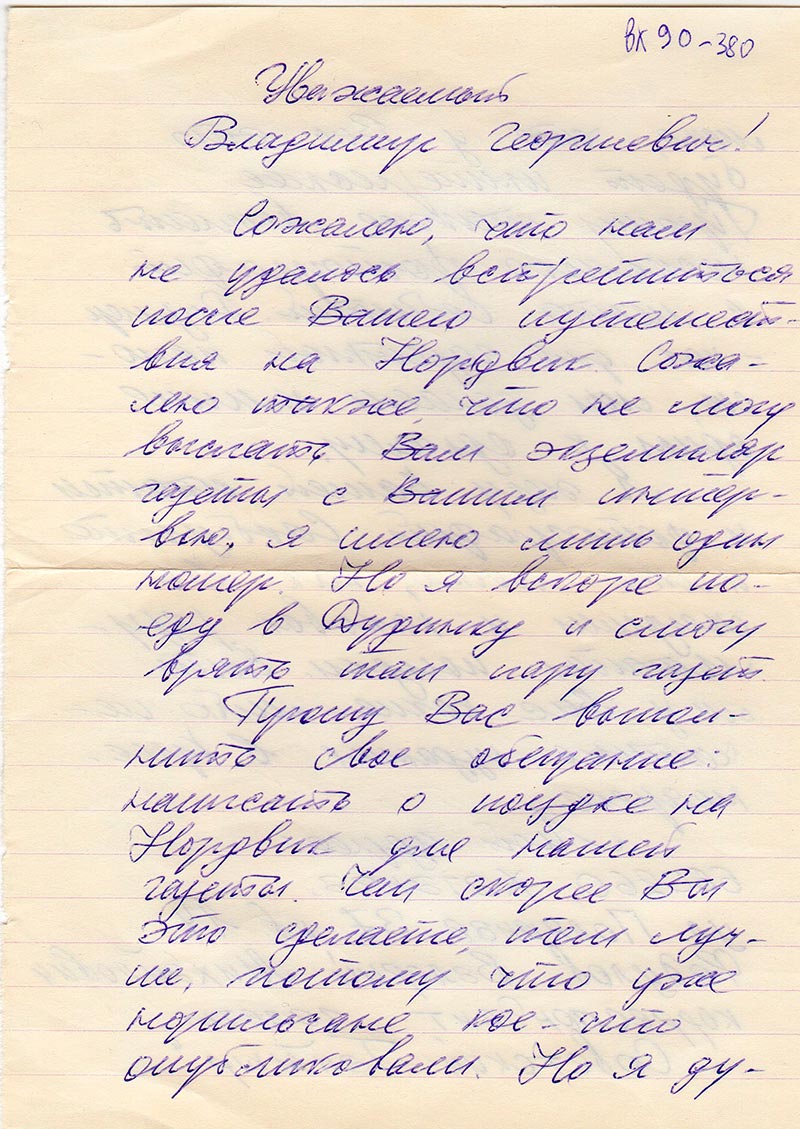 ВК 90-380
Уважаемый
Владимир Георгиевич!
Сожалею, что нам
не удалось встретиться
после Вашего путешест-
вия на Нордвик. Сожа-
лею также, что не могу
выслать Вам экземпляр
газеты с Вашим интер-
вью, я имею лишь один
номер. Но я вскоре по-
еду в Дудинку и смогу
взять там пару газет.
Прошу Вас выпол-
нить свое обещание:
написать о поездке на
Нордвик для нашей
газеты. Чем скорее Вы
это сделаете, тем луч-
ше, потому что уже
норильчане кое-что
опубликовали. Но я ду-